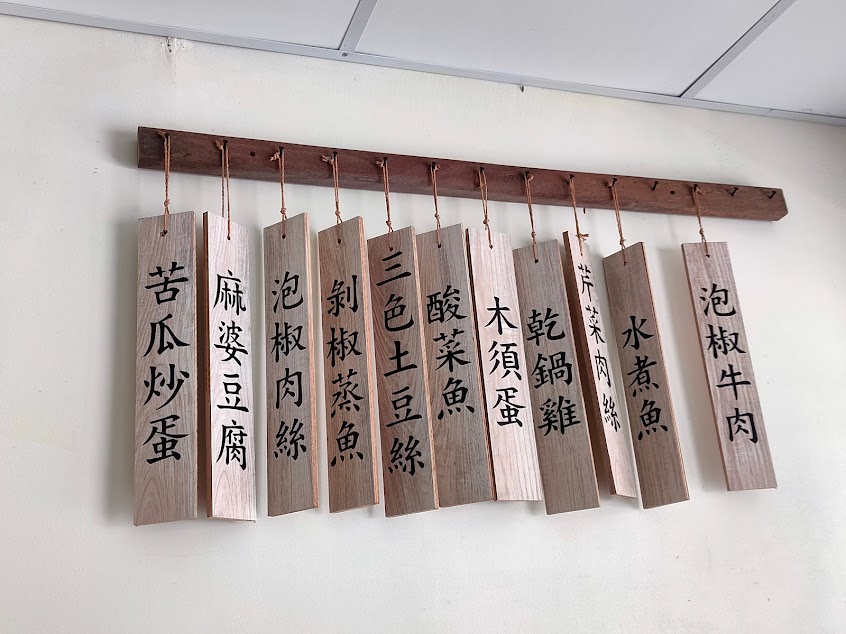 苦瓜炒蛋
麻婆豆腐
泡椒肉絲
剝椒蒸魚
三色土豆絲
酸菜魚
木須蛋
乾鍋雞
芹菜肉絲
水煮魚
泡椒牛肉